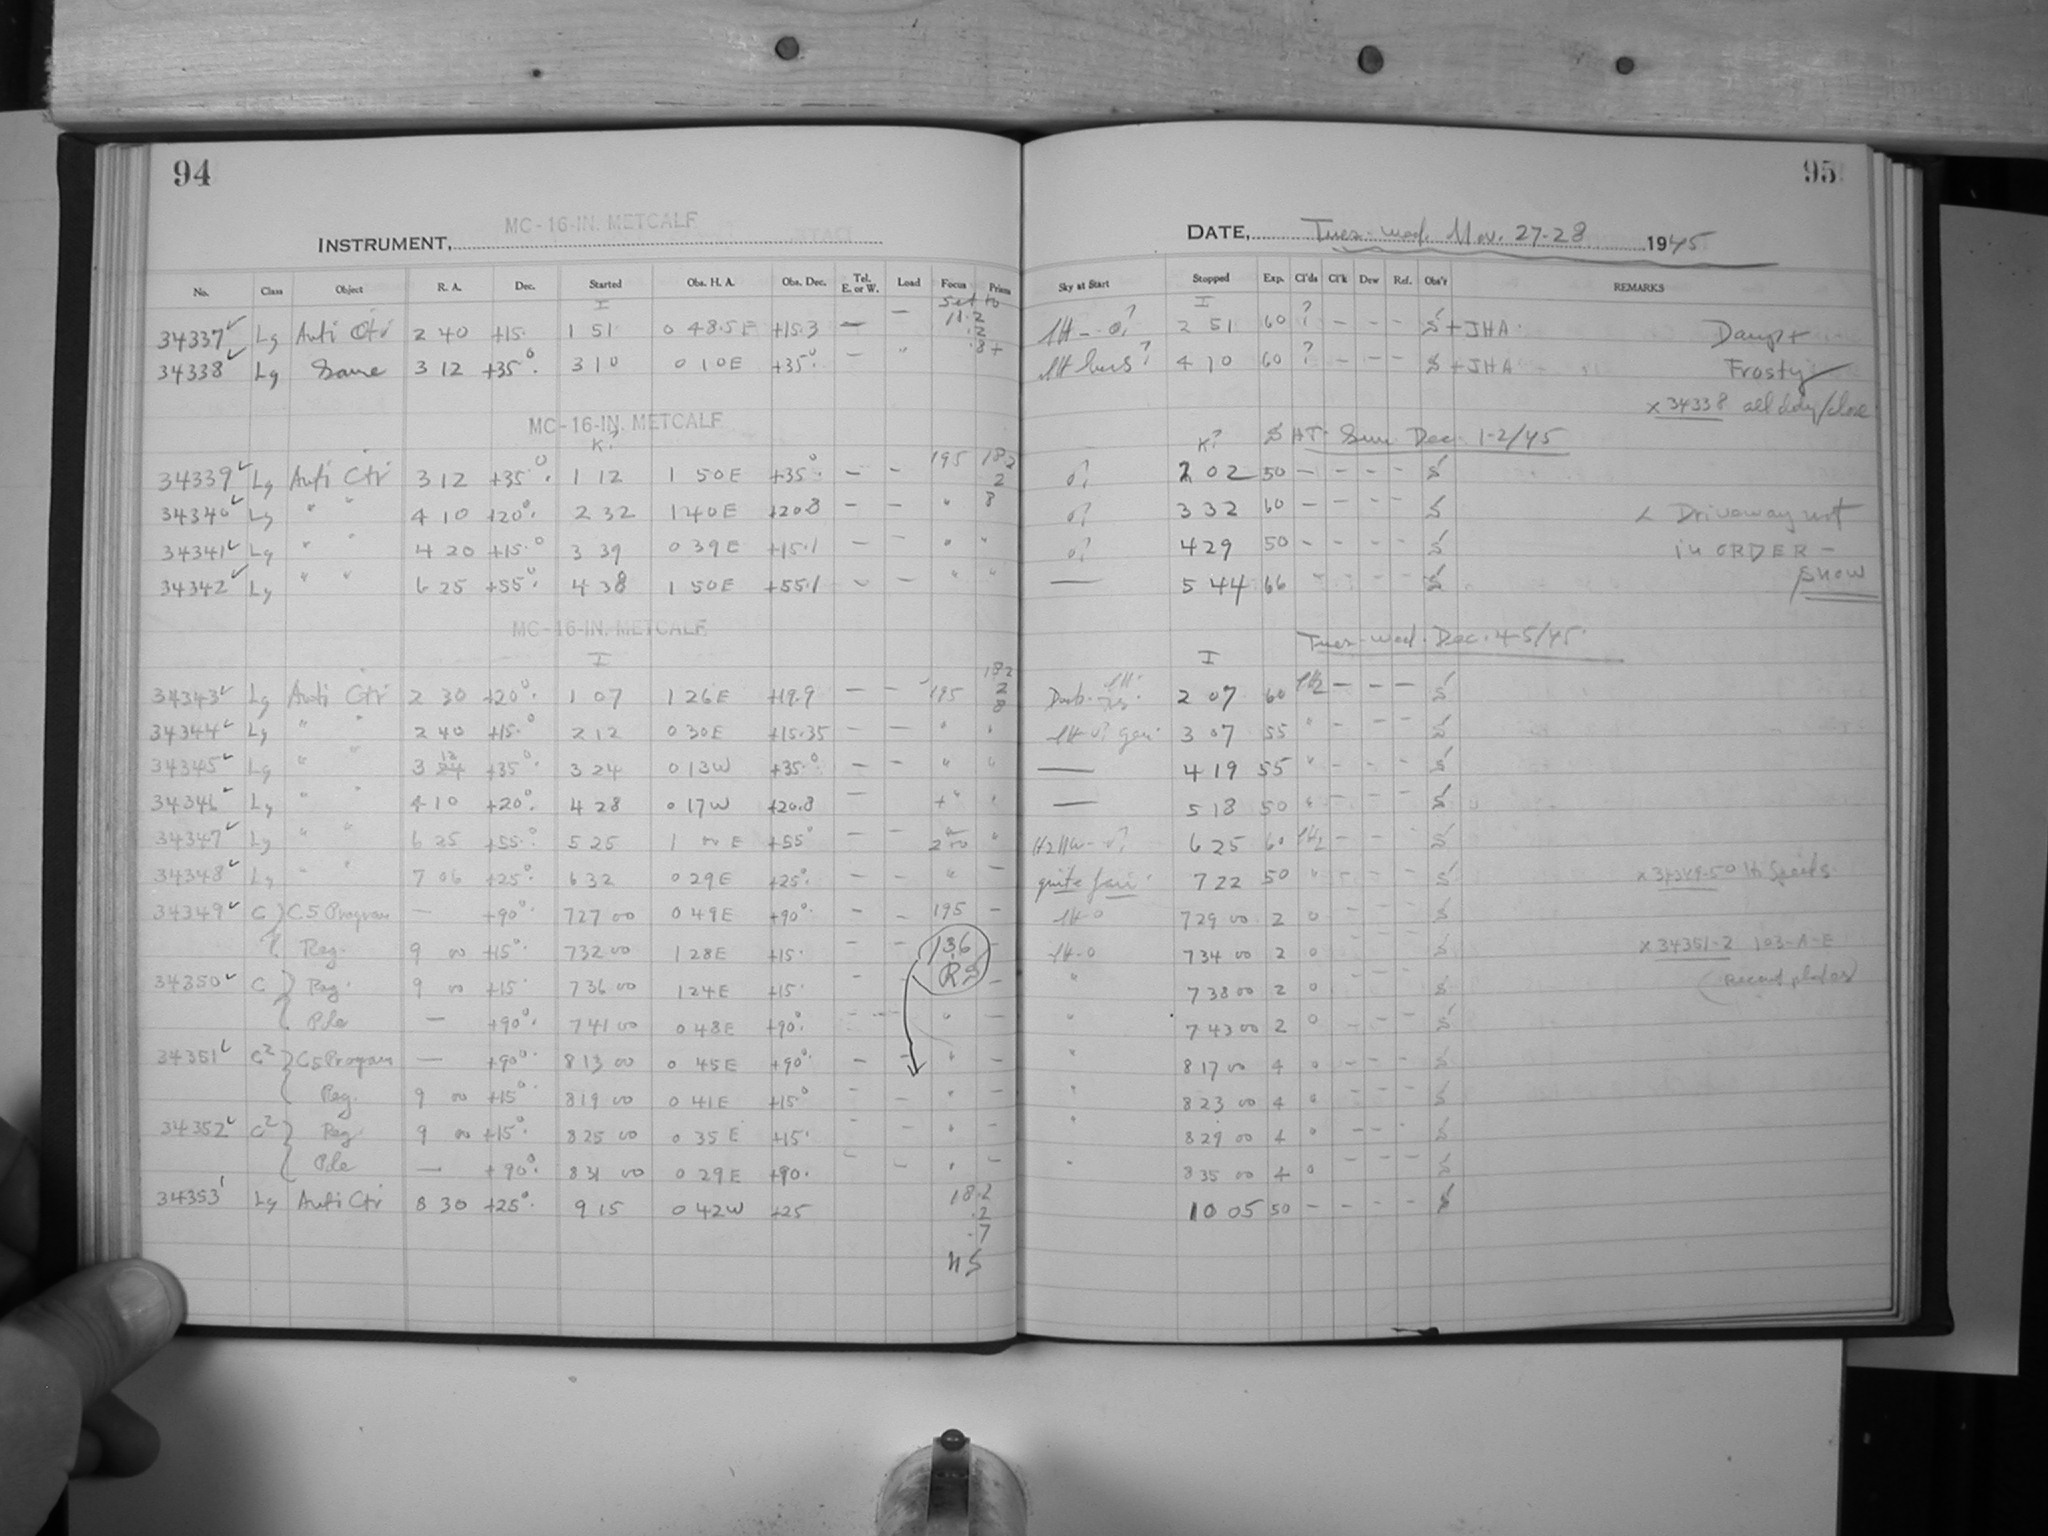 94
MC-16-IN. METCALF
INSTRUMENT,
No. Class Object R. A. Dec. Started Obs. H. A. Obs. Dec. Tel. E. or W. Load Focus Prism
I set to
34337 Lg Anti Ctr 2 40 +15. 1 51 0 48.5 E +15.3 — — 11.2
.2
.8+
34338 Lg Same 3 12 +35°. 3 10 0 10 E +35°. — "
MC-16-IN. METCALF
K?
34339 Lg Anti Ctr 3 12 +35°. 1 12 1 50 E +35°. — — 195 18.2
2
8
34340 Lg " " 4 10 +20°. 2 32 1 40 E +20.8 — — "
34341 Lg " " 4 20 +15.° 3 39 0 39 E +15.1 — — " "
34342 Lg " " 6 25 +55°. 4 38 1 50 E +55.1 — — " "
MC-16-IN. METCALF
I
34343 Lg Anti Ctr 2 30 +20°. 1 07 1 26 E +19.9 — — 195 18.2
2
8
34344 Lg " " 2 40 +15.° 2 12 0 30 E +15.35 — — " "
34345 Lg " " 3 12 +35°. 3 24 0 13 W +35.° — — " "
34346 Lg " " 4 10 +20°. 4 28 0 17 W +20.8 — +" "
34347 Lg " " 6 25 +55.° 5 25 1 00 E +55° — — 200 "
34348 Lg " " 7 06 +25°. 6 32 0 29 E +25°. — — " —
34349 C C5 Program — +90°. 7 27 00 0 49 E +90°. — — 195 —
Reg. 9 00 +15°. 7 32 00 1 28 E +15. — — 136 —
R?
34350 C Reg. 9 00 +15. 7 36 00 1 24 E +15. — —
Pole — +90°. 7 41 00 0 48 E +90°. — — "
34351 C² C5 Program — +90°. 8 13 00 0 45 E +90°. — — " —
Reg. 9 00 +15° 8 19 00 0 41 E +15° — — " —
34352 C² Reg. 9 00 +15°. 8 25 00 0 35 E +15. — — " —
Pole — +90°. 8 31 00 0 29 E +90. — — " —
34353 Lg Anti Ctr 8 30 +25° 9 15 0 42 W +25 18.2
.2
.7
95
DATE, Tues-Wed. Nov. 27-28 1945
Sky at Start Stopped Exp. Cl'ds Cl'k Dew Ref. Obs'r REMARKS
I
2 51 60 ? — — — S + JHA. Damp +
4 10 60 ? — — — S + JHA Frosty
x 34338 all
K? Sun Dec. 1-2/45
2 02 50 — — — — S
3 32 60 — — — — S Driveway not
4 29 50 — — — — S in ORDER —
— 5 44 66 S snow
Tues-Wed. Dec. 4-5/45.
I
2 07 60 — — — S
3 07 55 " — — — S
— 4 19 55 " — — — S
— 5 18 50 " — — — S
6 25 60 — — S
quite fair. 7 22 50 " — — S x 34349-50
7 29 00 2 0 — — — S
7 34 00 2 0 — — — S x 34351-2 103-A-E
" 7 38 00 2 0 — — — S
" 7 43 00 2 0 — — — S
" 8 17 00 4 0 — — — S
" 8 23 00 4 0 — — — S
" 8 29 00 4 0 — — — S
" 8 35 00 4 0 — — — S
10 05 50 — — — — S